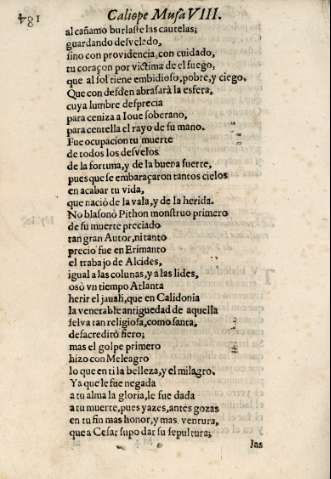 184
Caliope Musa VIII.
al cañamo burlaste las cautelas;
guardando desvelado,
sino con providencia, con cuidado,
tu coraçon por victima de el fuego,
que al sol tiene embidioso, pobre, y ciego,
Que con desden abrasarà la esfera,
cuya lumbre desprecia
para ceniza a Ioue soberano,
para centella el rayo de su mano.
Fue ocupacion tu muerte
de todos los desvelos
de la fortuna, y de la buena suerte,
pues que se embaraçaron tantos cielos
en acabar tu vida,
que naciò de la vala, y de la herida.
No blasonò Pithon monstruo primero
de su muerte preciado
tan gran Autor, ni tanto
precio fue en Erimanto
el trabajo de Alcides,
igual a las colunas, y a las lides,
osò vn tiempo Atlanta
herir el jauali, que en Calidonia
la venerable antiguedad de aquella
selva tan religiosa, como santa,
desacreditò fiero;
mas el golpe primero
hizo con Meleagro
lo que en ti la belleza, y el milagro.
Ya que le fue negada
a tu alma la gloria, le fue dada
a tu muerte, pues yazes, antes gozas
en tu fin mas honor, y mas ventura,
que a Cesar supo dar su sepultura;
las